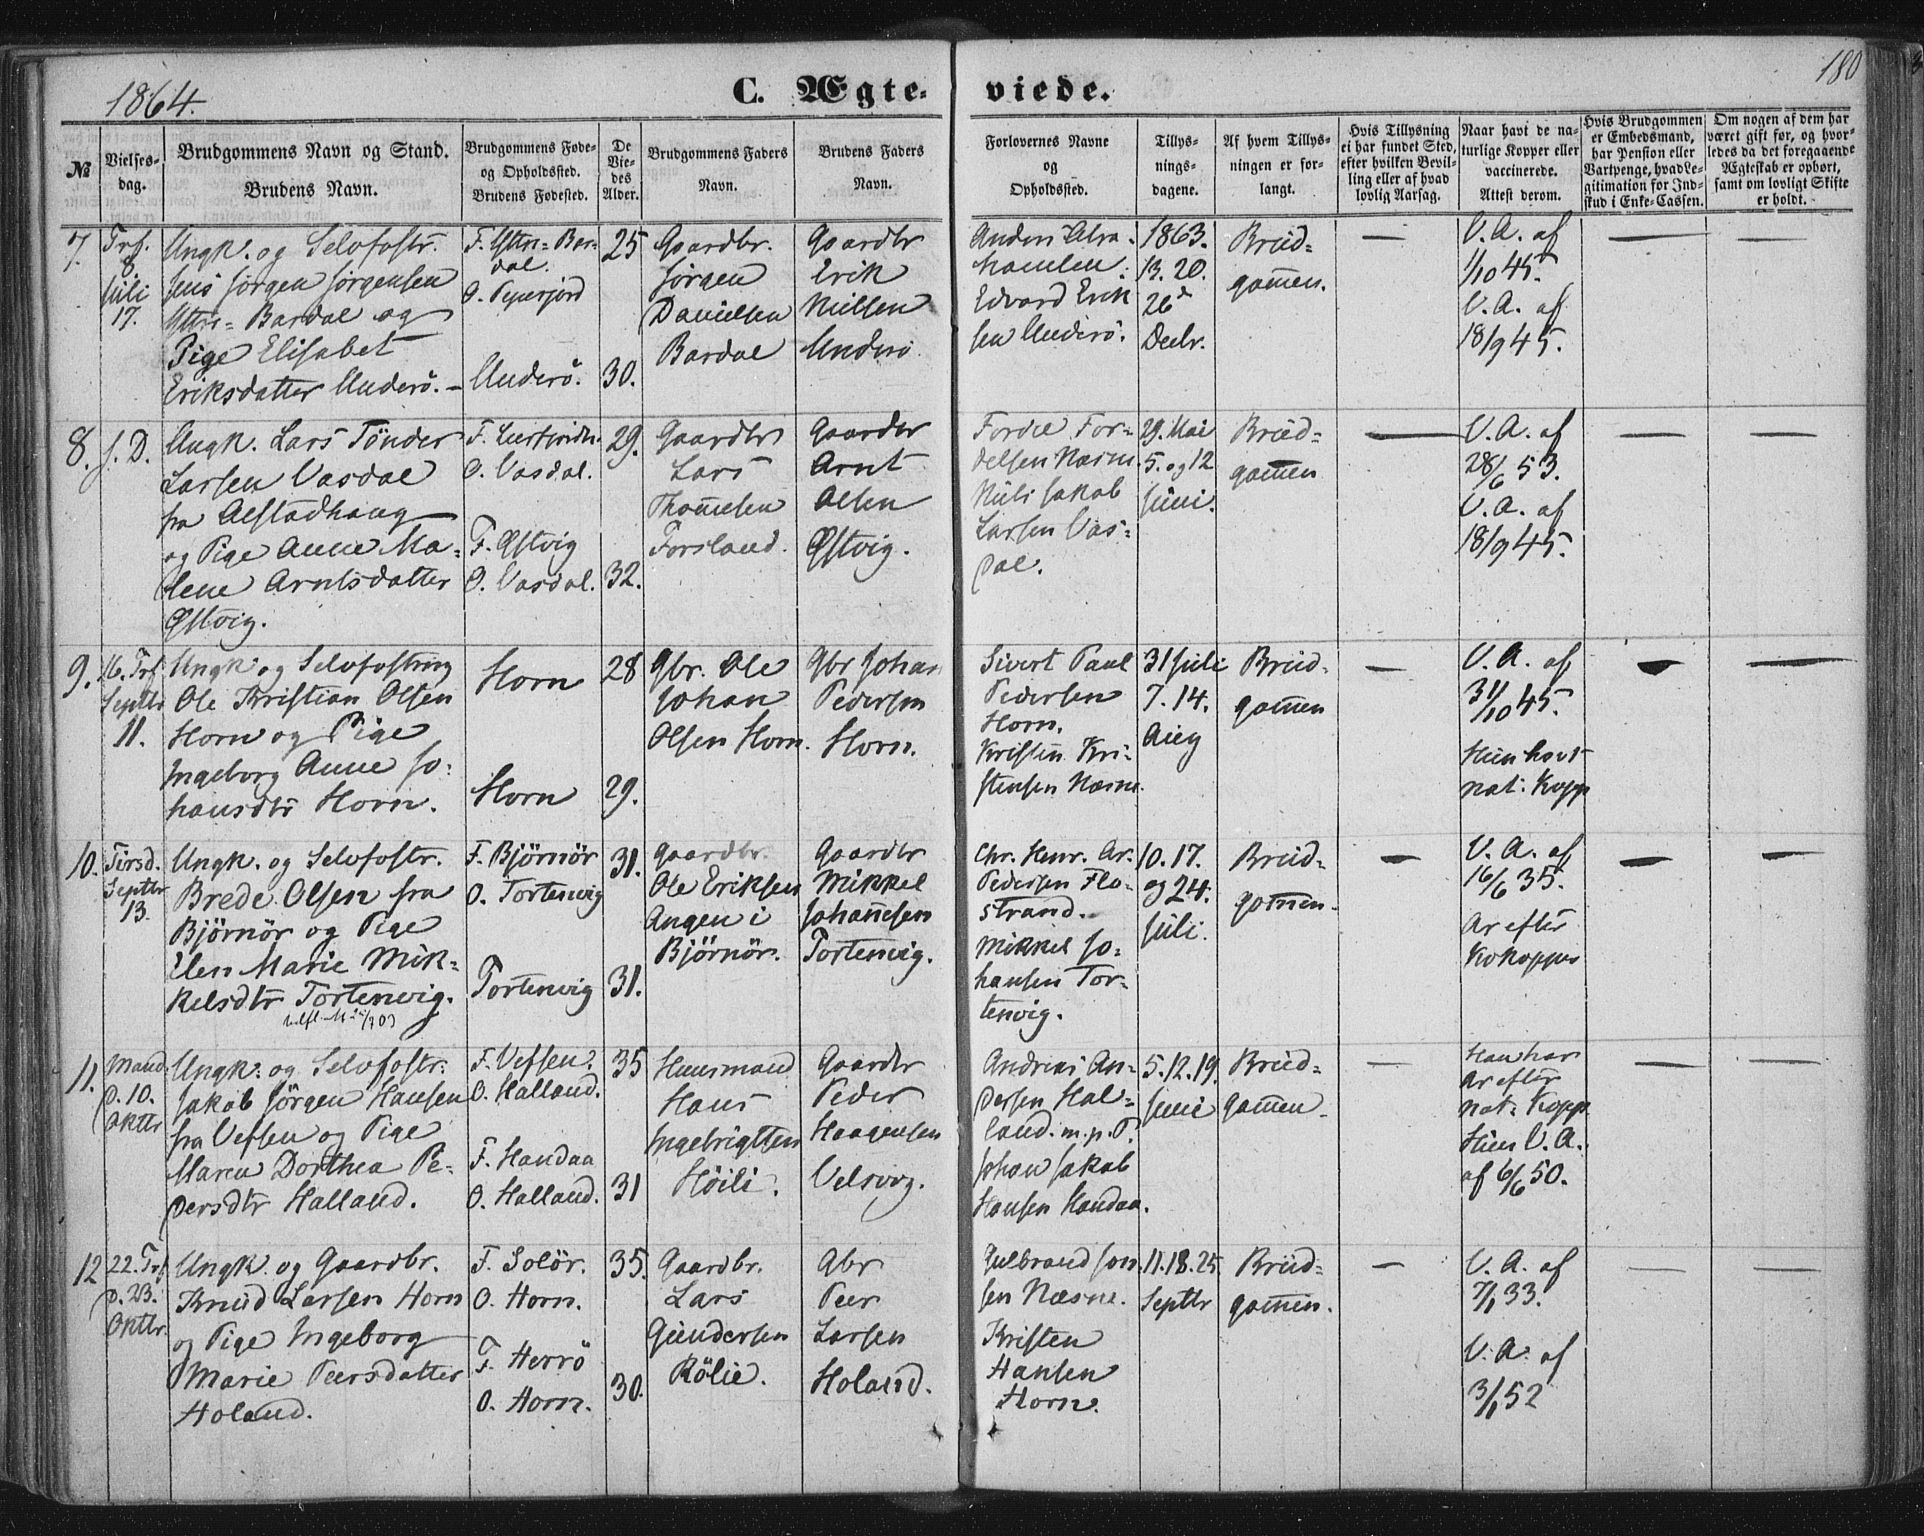 1864.
C. Ægte-
viede.
180
№
Vielses-
dag.
Brudgommens Navn og Stand.
Brudens Navn.
Brudgommens Føde-
og Opholdssted.
Brudens Fødested.
De
Vie-
des
Alder.
Brudgommens Faders
Navn.
Brudens Faders
Navn.
Forlovernes Navne
og
Opholdssted.
Tillys-
nings-
dagene.
Af hvem Tillys-
ningen er for-
langt.
Hvis Tillysning
ei har fundet Sted,
efter hvilken Bevil-
ling eller af hvad
lovlig Aarsag.
Naar havt de na-
turlige Kopper eller
vaccinerede.
Attest derom.
Hvis Brudgommen
er Embedsmand,
har Pension eller
Vartpenge, hvad Le-
gitimation for Ind-
skud i Enke-Cassen.
Om nogen af dem har
været gift før, og hvor-
ledes da det foregaaende
Ægteskab er ophørt,
samt om lovligt Skifte
er holdt.
7.
Trf.
8
Juli
17.
Ungk. og Selvfostr.
Jens Jørgen Jørgensen
Ytre-Bardal og
Pige Elisabet
Eriksdatter Underö. -
F. Yttre-Bar-
dal.
O.
Underö.
25
30.
Gaardbr.
Jørgen
Danielsen
Bardal
Gaardbr
Erik
Nielsen
Underö
Anders Abra-
hamsen
Edvard Erik
sen Underö.
1863.
13. 20.
26d
Decbr.
Brud-
gommen.
—
V. A. af
1/10 45.
V. A. af
18/9 45.
—
—
8.
s. D.
Ungk. Lars Tönder
Larsen Vasdal
fra Alstadhaug
og Pige Anne Ma-
lene Arntsdatter
Østvig.
F.
O. Vasdal.
F. Østvig
O. Vasdal.
29.
32.
Gaardbr
Lars
Thomesen
Forsland.
Gaardbr
Arnt
Olsen
Østvig.
Fordel For-
delsen Næsne.
Nils Jakob
Larsen Vas-
dal.
29. Mai
5. og 12
Juni.
Brud-
gommen
—
V. A. af
28/6 53.
V. A. af
18/9 45.
—
—
9.
16. Trf
Septbr
11.
Ungk og Selvfostring
Ole Kristian Olsen
Horn og Pige
Ingeborg Anne Jo-
hansdtr Horn.
Horn
Horn
28
29.
Gbr. Ole
Johan
Olsen Horn.
Gbr Johan
Pedersen
Horn.
Sivert Paul
Pedersen
Horn.
Kristen Kri-
stensen Næsne.
31 Juli
7. 14.
Aug
Brud-
gommen
—
V. A. af
31/10 45.
Hun havt
nat: Kopp
—
—
10.
Tirsd.
Septbr
13.
Ungk. og Selvfostr.
Brede Olsen fra
Björnör og Pige
Elen Marie Mik-
kelsdtr Tortenvig.
F. Björnör
O. Tortenvig
Tortenvig
31.
31.
Gaardbr.
Ole Eriksen
Angen i
Björnör.
Gaardbr
Mikkel
Johannesen
Tortenvig.
Chr. Henr. Ar.
Pedersen Flo-
strand.
Mikkel Jo-
hansen Tor-
tenvig.
10. 17.
og 24.
Juli.
Brud-
gommen.
—
V. A. af
16/6 35.
Ar efter
Kokopper
—
—
11.
Mand.
d. 10.
Oktbr
Ungk. og Selvfostr.
Jakob Jörgen Hansen
fra Vefsen og Pige
Maren Dorthea Pe-
dersdtr Halland.
F. Vefsen.
O. Halland.
F. Handaa
O. Halland.
35
31
Huusmand
Hans
Ingebrigtsen
Höili.
Gaardbr
Peder
Haagensen
Velsvig.
Andreas An-
dersen Hal-
land. m. p. P.
Johan Jakob
Hansen Handaa.
5. 12. 19.
Juni
Brud-
gommen.
—
Han har
Ar efter
nat: Kopp
Hun V. A.
af 6/6 50.
—
—
12
22. Trf
d. 23.
Oktbr.
Ungk. og Gaardbr.
Knud Larsen Horn
og Pige Ingeborg
Marie Peersdatter
Holand.
F. Solör.
O. Horn.
F. Herrö
O. Horn.
35.
30.
Gaardbr.
Lars
Gundersen
Rölie.
Gbr
Peer
Larsen
Holand.
Gulbrand Jon-
sen Næsne.
Kristen
Hansen
Horn.
11. 18. 25.
Septbr
Brud-
gommen.
—
V. A. af
7/1 33.
V. A. af
3/1 52
—
—